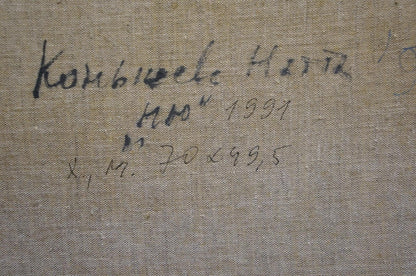 Конышева Натта
"ню" 1991
х., м. 70х49,5